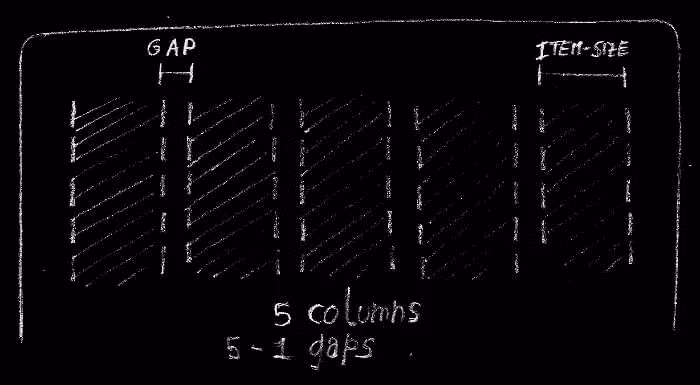 GAP
ITEM-SIZE
5 columns
5-1 gaps